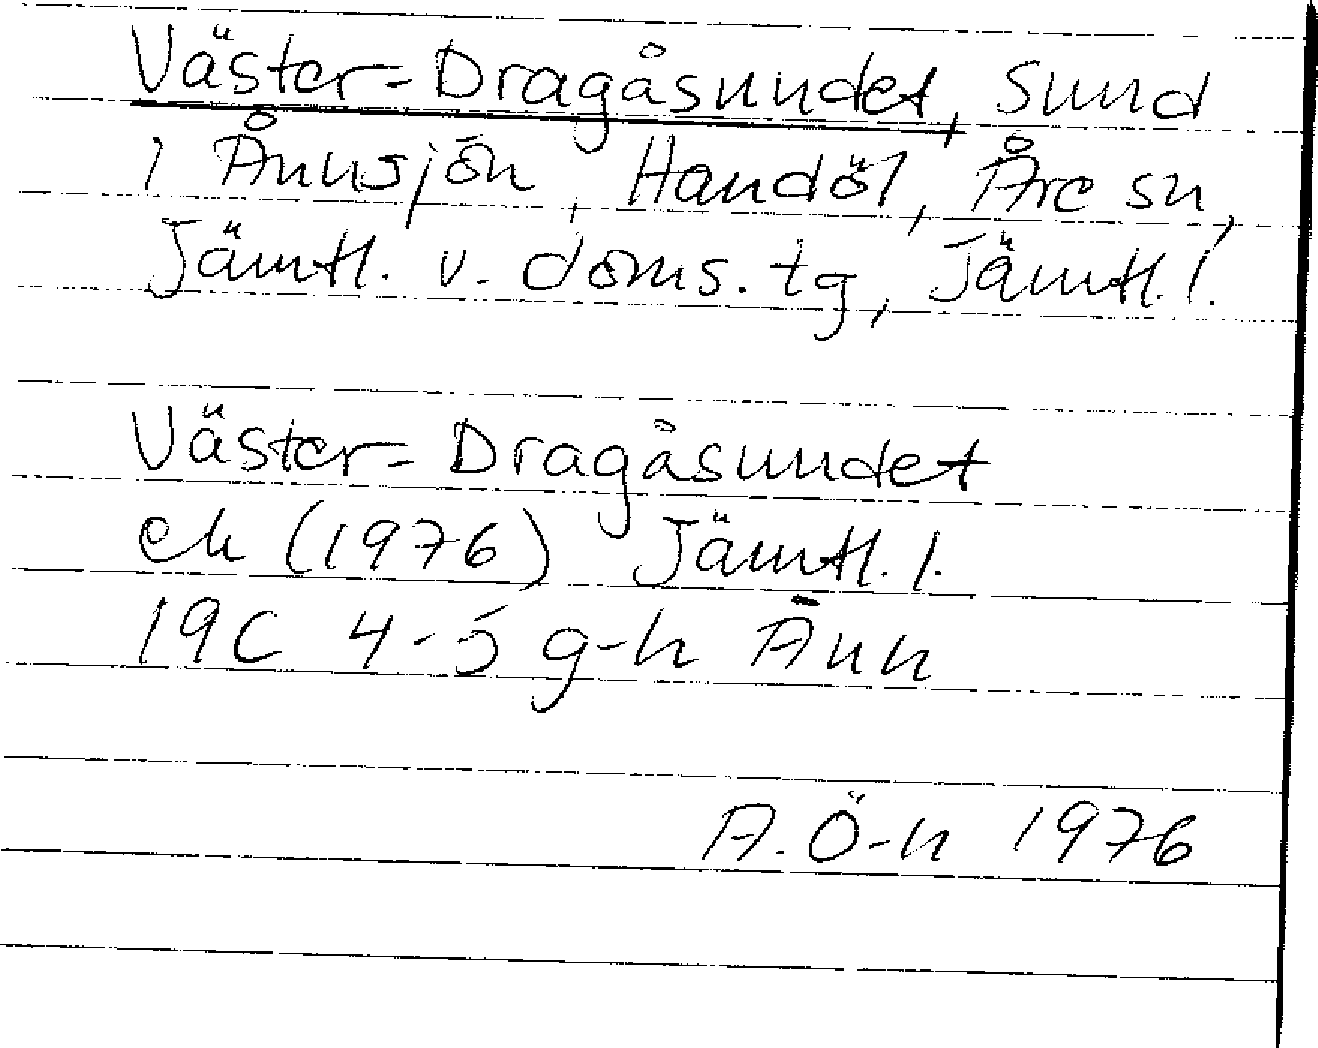 Väster=Dragåsundet, sund
i Ånnsjön, Handöl, Åre sn,
Jämtl. v. doms. tg, Jämtl. l.
Väster=Dragåsundet
ek (1976) Jämtl. l.
19C 4-5 g-h Änn
A. Ö-n 1976